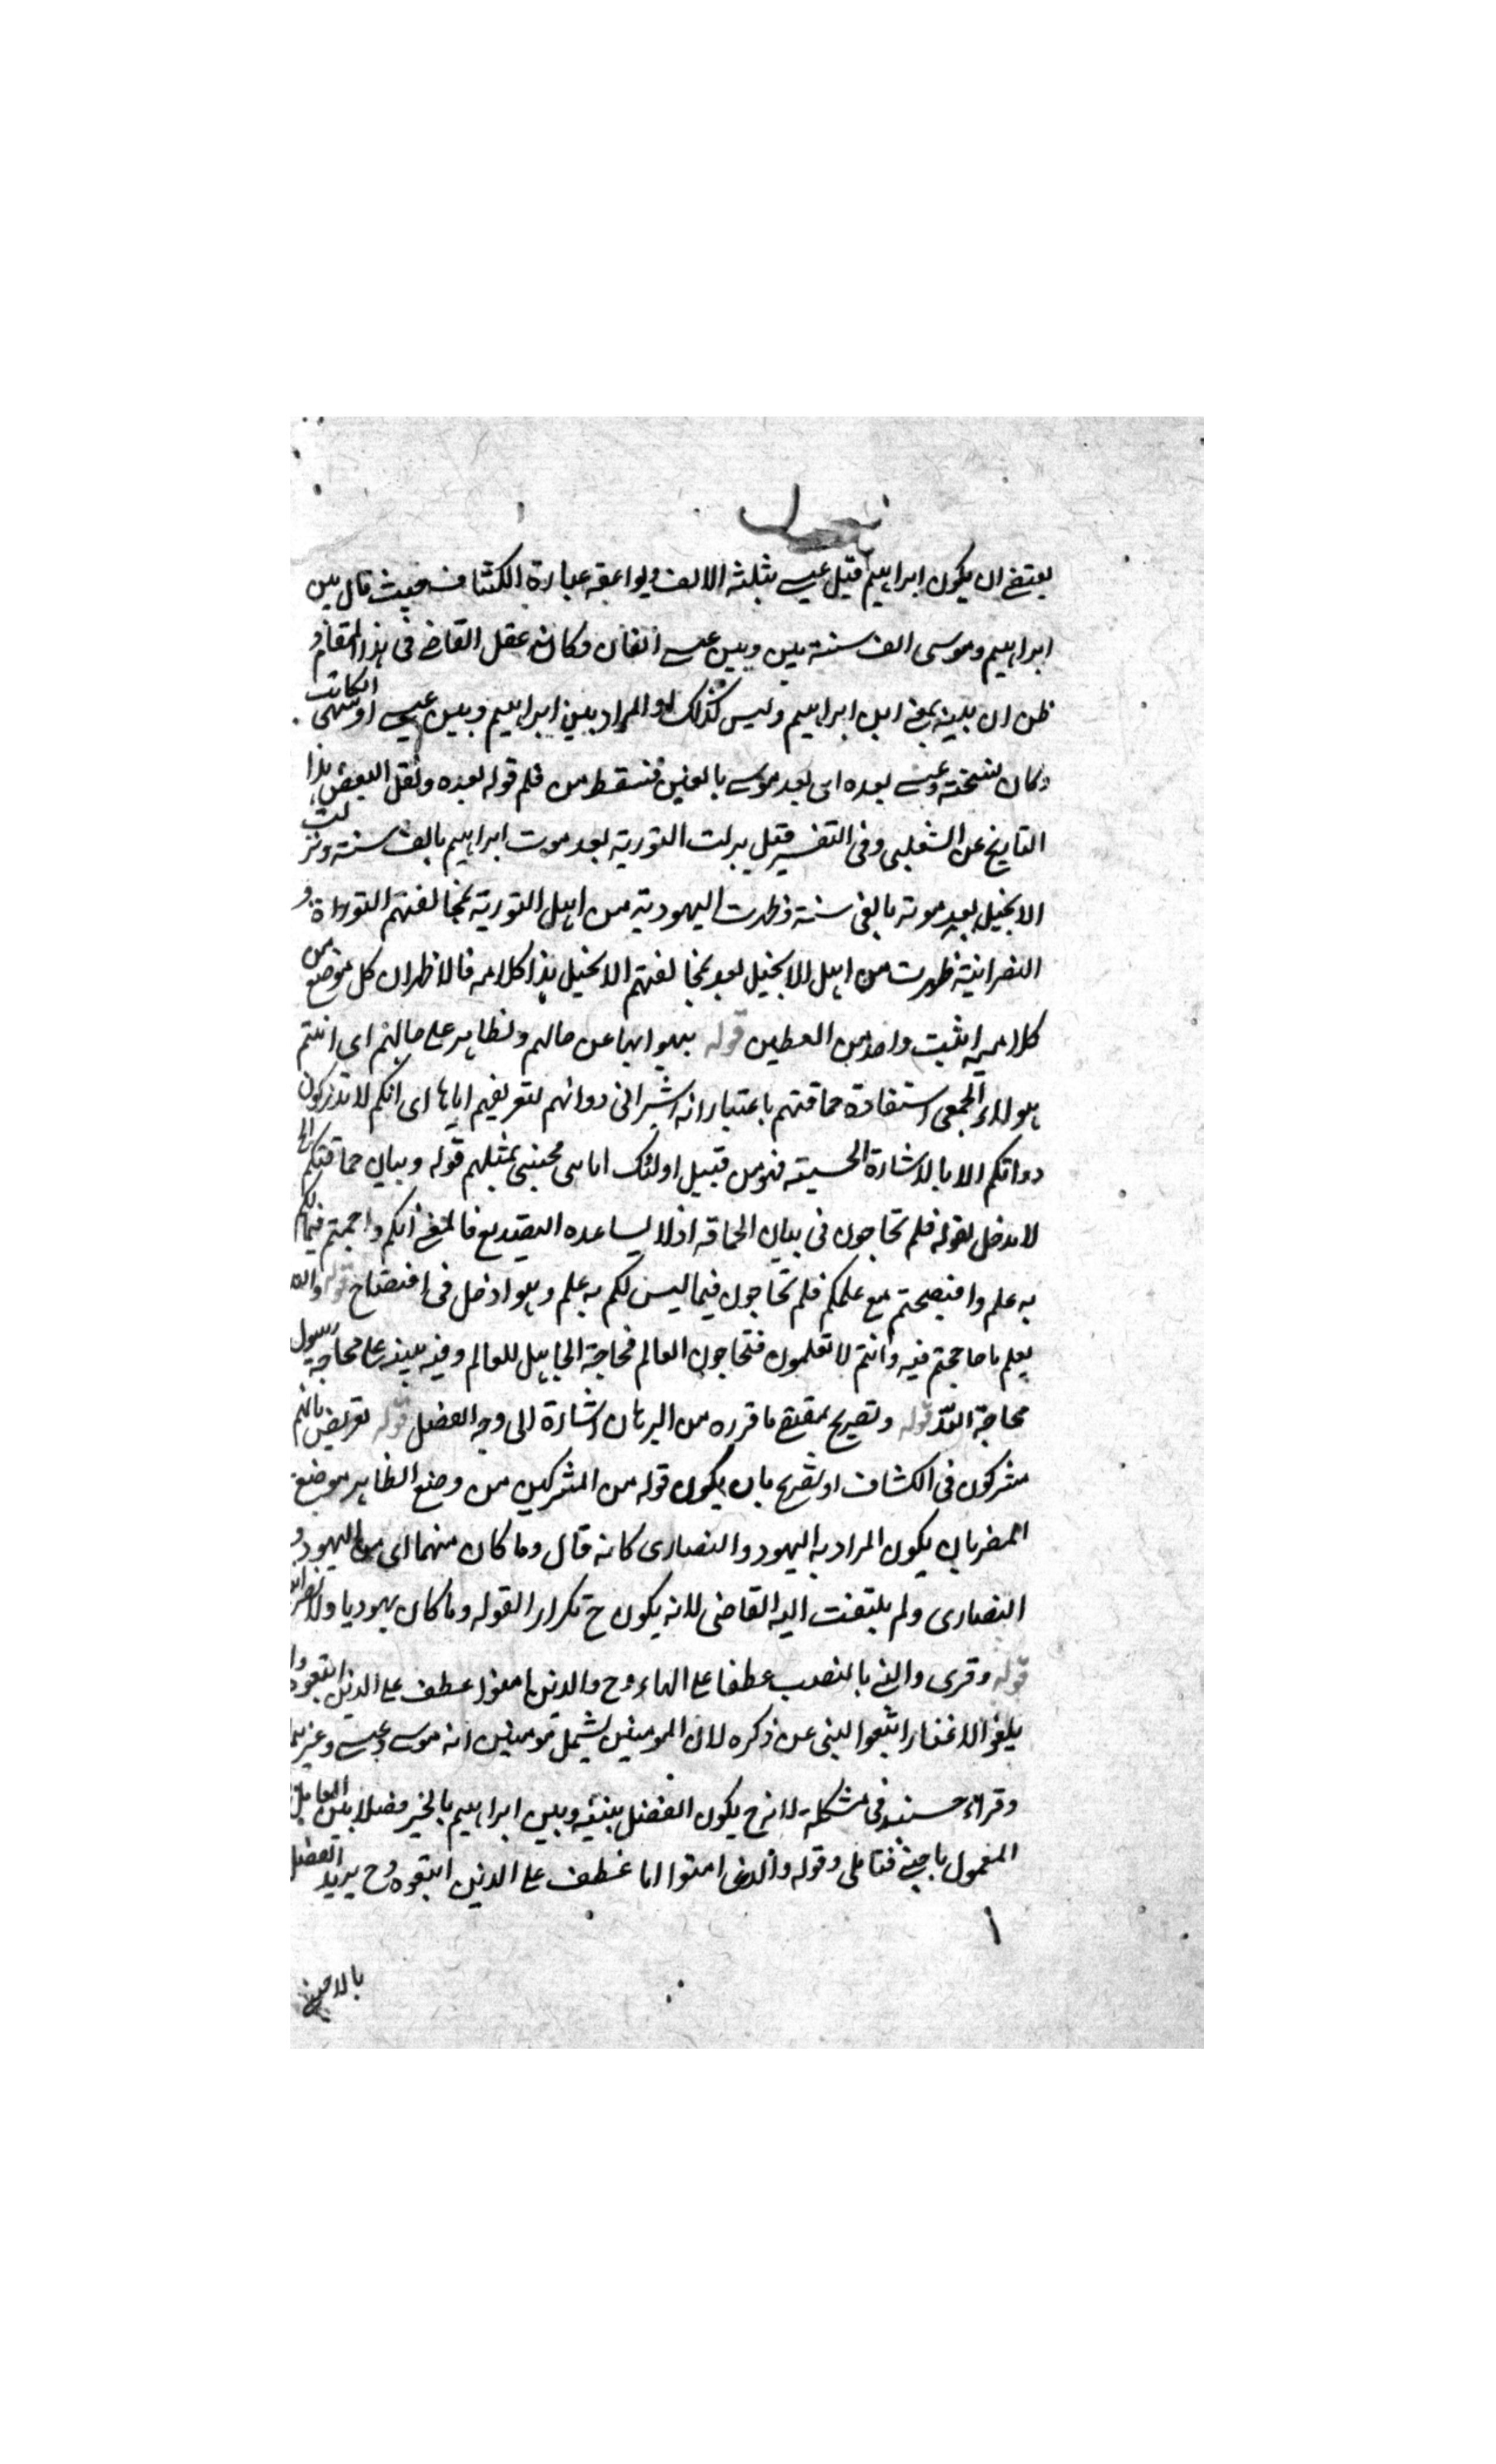 يقتضى ان يكون ابراهيم قبل عيسى بثلثة الالف ويوافقه عبارة الكشاف حيث قال بين
ابراهيم وموسى الف سنة بين وبين عيسى الفان وكانه عقل القاضى فى هذا المقام و
ظن ان بينه بمعنى ابراهيم وليس كذلك المراد بين ابراهيم وبين عيسى او سهى الكاتب
وكان نسخته وعيسى بعده اى بعد موسى بالفين فسقط من قلم قوله بعده ونقل البعض هذا
التاريخ عن الثعلبى وفى التفسير قيل نزلت التورية بعد موت ابراهيم بالف سنة ونزلت
الانجيل بعد موته بالفى سنة وظهرت اليهودية من اهل التورية بمخالفتهم التوراة و
النصرانية ظهرت من اهل الانجيل بعد مخالفتهم الانجيل هذا كلامه فالاظهر ان كل موضع من
كلاميه اثبت واحد من قوله بهوا بها عن حالهم اى انتم
هولاء الحمقى استفادة حماقتهم باعتبار انه اشير الى ذواتهم لتعريفهم اياها اى انكم لا تدركون
ذواتكم الا بالاشارة الحسية فهو من قبيل اولئك اباىى فجئنى بمثلهم قوله وبيان حماقتكم
لا مدخل لقوله فلم تحاجون فى بيان الحماقة اذ لا يساعده فالمعنى انكم حاججتم فيما لكم
به علم وافتضحتم مع علمكم فلم تحاجون فيما ليس لكم به علم وهو ادخل فى افتضاح قوله والله
يعلم ما حاججتم فيه وانتم لا تعلمون فتحاجون العالم فمحاجة الجاهل للعالم وفيه على محاجة رسول
محاجة الله قوله وتصريح بمقتضى ما قرره من البرهان اشارة الى وجه الفصل قوله تعريض بانهم
مشركون فى الكشاف او تصريح بان يكون قوله من المشركين من وضع الظاهر موضع
المضمر بان يكون المراد به اليهود والنصارى كانه قال وما كان منهما اى من اليهود و
النصارى ولم يلتفت اليه القاضى لانه يكون ح تكرارا لقوله وما كان يهوديا ولا نصرانيا
قوله وقرى والنبى بالنصب عطفا على الهاء وح والذين امنوا عطف على الذين اتبعوه وا
يلغو اتبعوا النبى عن ذكره لان المومنين يشمل مومنين امة موسى وعيسى وغيرهما
وقراءة مشكلة لانه ح يكون الفصل بينه وبين ابراهيم بالخبر فصلا بين العامل
المعمول باجنبى فتامل وقوله والذين امنوا اما عطف على الذين اتبعوه وح يريد الفصل